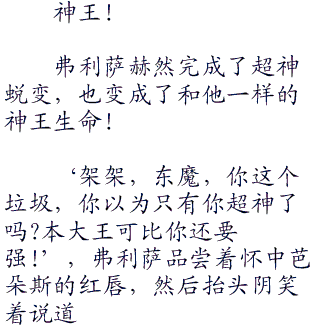 神王！
弗利萨赫然完成了超神
蜕变，也变成了和他一样的
神王生命！
‘架架，东魔，你这个
垃圾，你以为只有你超神了
吗?本大王可比你还要
强！’，弗利萨品尝着怀中芭
朵斯的红唇，然后抬头阴笑
着说道